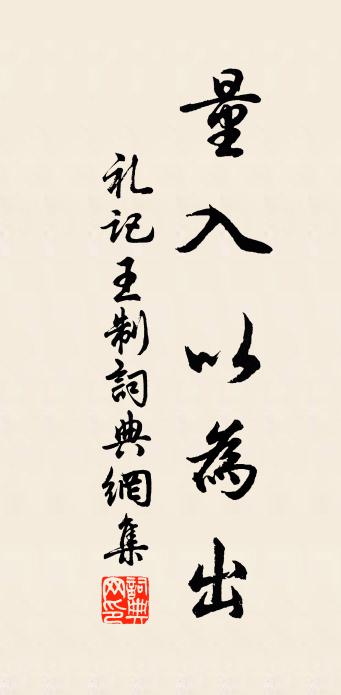 量入以為出
礼记王制詞典網集
詞典网印